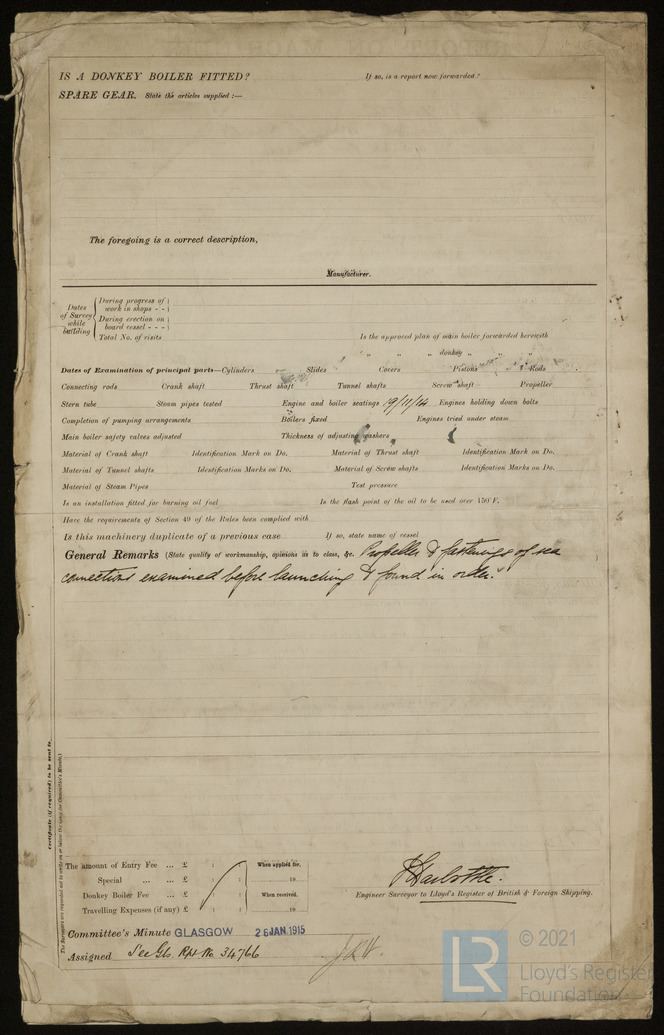 IS A DONKEY BOILER FITTED? If so, is a report now forwarded?
SPARE GEAR. State the articles supplied :—
The foregoing is a correct description,
Manufacturer.
Dates of Survey while building
During progress of work in shops - -
During erection on board vessel - - -
Total No. of visits
Is the approved plan of main boiler forwarded herewith
" " " donkey " " "
Dates of Examination of principal parts—Cylinders Slides Covers Pistons Rods
Connecting rods Crank shaft Thrust shaft Tunnel shafts Screw shaft Propeller
Stern tube Steam pipes tested Engine and boiler seatings 19/11/14 Engines holding down bolts
Completion of pumping arrangements Boilers fixed Engines tried under steam
Main boiler safety valves adjusted Thickness of adjusting washers
Material of Crank shaft Identification Mark on Do. Material of Thrust shaft Identification Mark on Do.
Material of Tunnel shafts Identification Marks on Do. Material of Screw shafts Identification Marks on Do.
Material of Steam Pipes Test pressure
Is an installation fitted for burning oil fuel Is the flash point of the oil to be used over 150°F.
Have the requirements of Section 49 of the Rules been complied with
Is this machinery duplicate of a previous case If so, state name of vessel
General Remarks (State quality of workmanship, opinions as to class, &c. Propeller & fastenings of sea
connections examined before launching & found in order.
Certificate (if required) to be sent to
The Surveyors are requested not to write on or below the space for Committee's Minute.
The amount of Entry Fee ... £ : : When applied for,
Special ... ... £ : : 19
Donkey Boiler Fee ... £ : : When received,
Travelling Expenses (if any) £ : : 19
Engineer Surveyor to Lloyd's Register of British & Foreign Shipping.
Committee's Minute GLASGOW 26 JAN. 1915
Assigned See Gls. Rpt No. 34766
LR © 2021
Lloyd's Register
Foundation